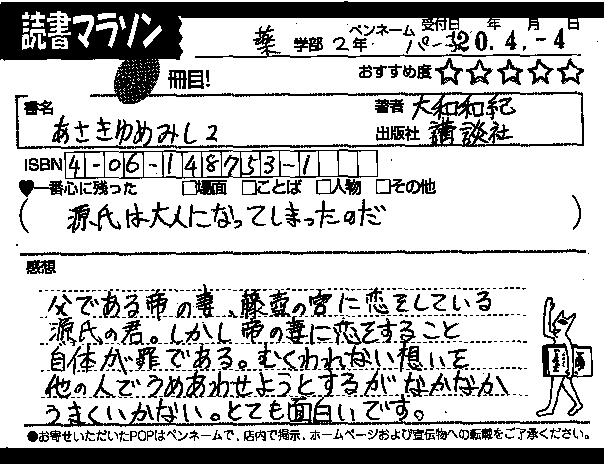 読書マラソン
ペンネーム 受付日 年 月 日
薬 学部 2年 20.4.-4
冊目!
おすすめ度 ☆☆☆☆☆
書名 著者 大和和紀
あさきゆめみし2 出版社 講談社
ISBN 4-06-148753-1
♥一番心に残った □場面 □ことば □人物 □その他
(源氏は大人になってしまったのだ)
感想
父である帝の妻、藤壺の宮に恋をしている
源氏の君。しかし帝の妻に恋をすること
自体が罪である。むくわれない想いを
他の人でうめあわせようとするがなかなか
うまくいかない。とても面白いです。
●お寄せいただいたPOPはペンネームで、店内で掲示、ホームページおよび宣伝物への転載をご了承ください。